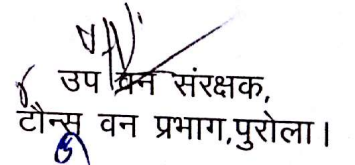 उप वन संरक्षक,
टौन्स वन प्रभाग,पुरोला।